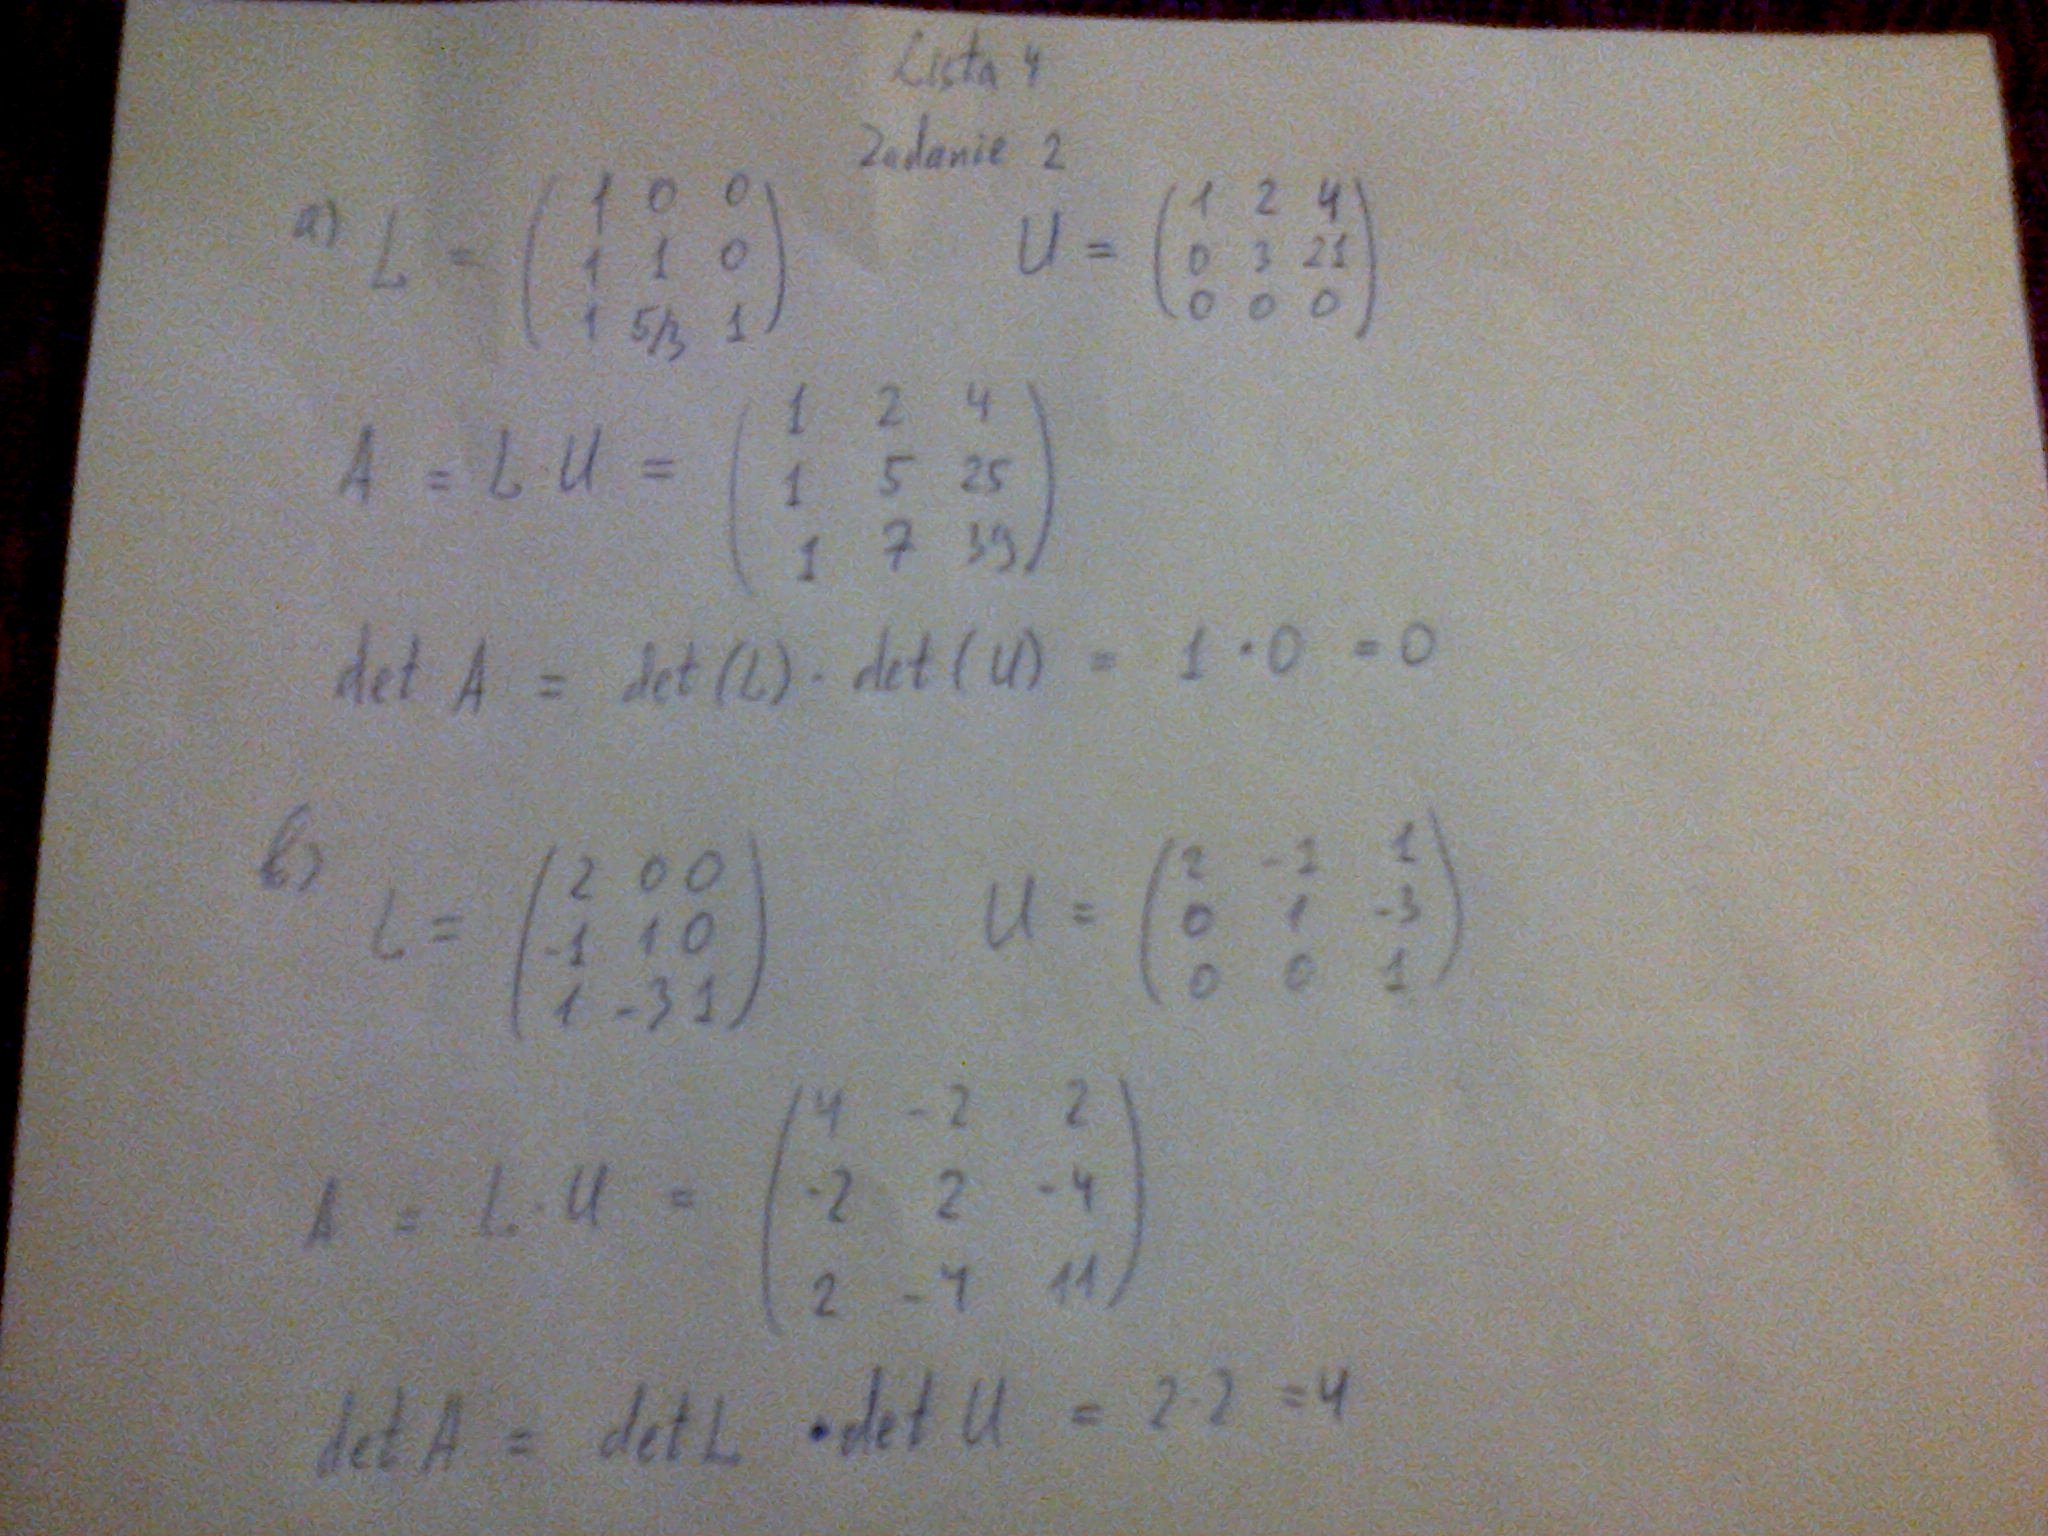 Lista 4
Zadanie 2
a) L = ( 1 0 0 ; 1 1 0 ; 1 5/3 1 ) U = ( 1 2 4 ; 0 3 21 ; 0 0 0 )
A = L · U = ( 1 2 4 ; 1 5 25 ; 1 7 39 )
det A = det(L) · det(U) = 1 · 0 = 0
b) L = ( 2 0 0 ; -1 1 0 ; 1 -3 1 ) U = ( 2 -1 1 ; 0 1 -3 ; 0 0 1 )
A = L · U = ( 4 -2 2 ; -2 2 -4 ; 2 -4 11 )
det A = det L · det U = 2 · 2 = 4